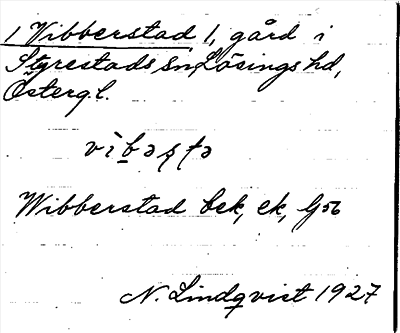 1 Vibberstad 1, gård i
Styrestads sn, Lösings hd,
Östergl.
vìbəṣṭə
Wibberstad bek, ek, G 56
N. Lindqvist 1927